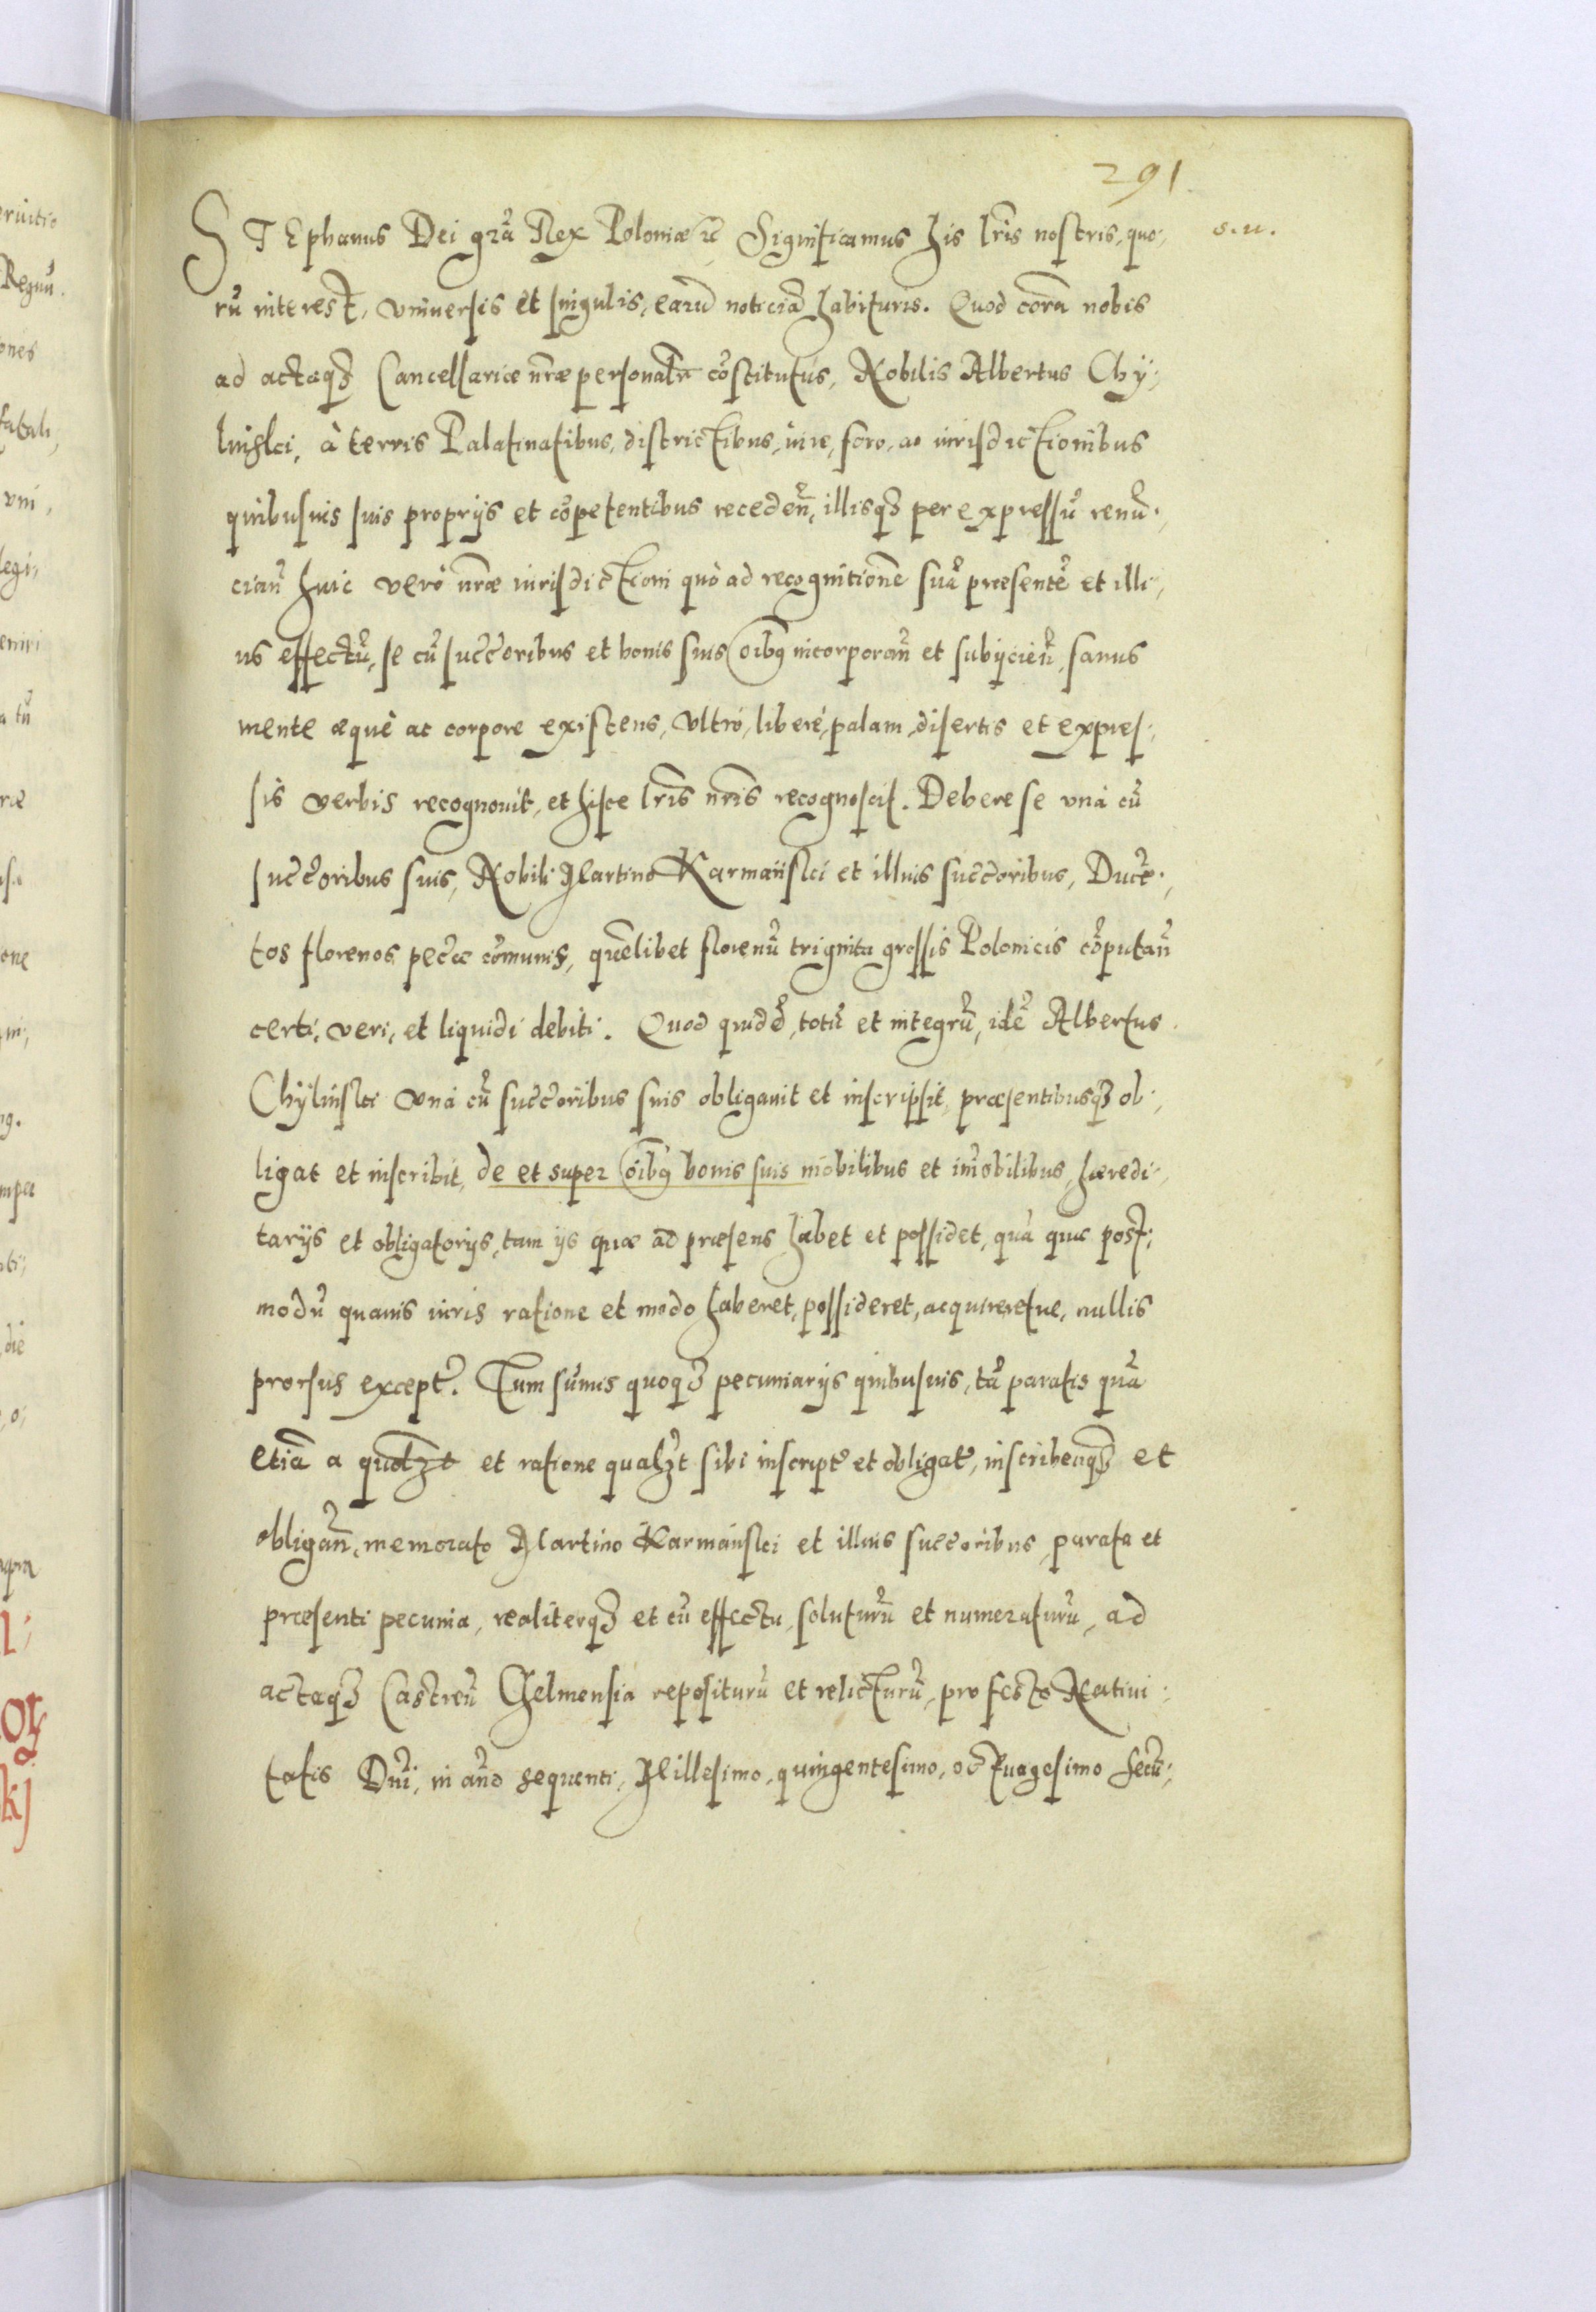 291
STEphanus Dei gr̃a Rex Poloniæ &c̃ Significamus his lr̃is nostris, quo, s.u.
rũ interest, vniuersis et singulis, earũ noticiã habituris. Quod corã nobis
ad actaqȝ Cancellariæ nr̃æ personalr̃ cõstitutus, Nobilis Albertus Chÿ,
linsKi, à terris Palatinatibus, districtibus, iure, foro, ac iurisdictionibus
quibusuis suis proprijs et cõpetentibus receden̄, illisqȝ per expressũ renũ,
cian̄ huic verò nr̃æ iurisdictioni quò ad recognitionẽ suã præsentẽ et illi,
us effectũ, se cũ succ̃oribus et bonis suis oĩbꝯ incorporan̄ et subijcien̄, sanus
mente æquè ac corpore existens, vltrò, liberè, palam, disertis et expres,
sis verbis recognouit, et hisce lr̃is nr̃is recognoscit. Debere se vnà cũ
succ̃oribus suis, Nobili Martino Karmański et illius succ̃oribus, Ducẽ,
tos florenos pec̃æ cõmunis, quẽlibet florenũ triginta grossis Polonicis cõputan̄
certi, veri, et liquidi debiti. Quod quidẽ, totũ et integrũ, idẽ Albertus
Chÿlinski vnà cũ succ̃oribus suis obligauit et inscripsit, præsentibusqȝ ob,
ligat et inscribit, de et super oĩbꝯ bonis suis mobilibus et im̃obilibus, hæredi,
tarijs et obligatorijs, tam ijs quæ ad præsens habet et possidet, quã quæ post,
modũ quauis iuris ratione et modo haberet, possideret, acquireretue, nullis
prorsus except̃. Tum sũmis quoqȝ pecuniarijs quibusuis, tã paratis quã
etiã a quolȝt et ratione qualȝt sibi inscript̃ et obligat̃, inscribenqȝ et
obligan̄, memorato Martino Karmański et illius succ̃oribus parata et
præsenti pecunia, realiterqȝ et cũ effectu, soluturũ et numeraturũ, ad
actaqȝ Castren̄ Chelmensia repositurũ et relicturũ, pro festo Natiui,
tatis Dñi, in an̄o sequenti, Millesimo, quingentesimo, octuagesimo secũ,